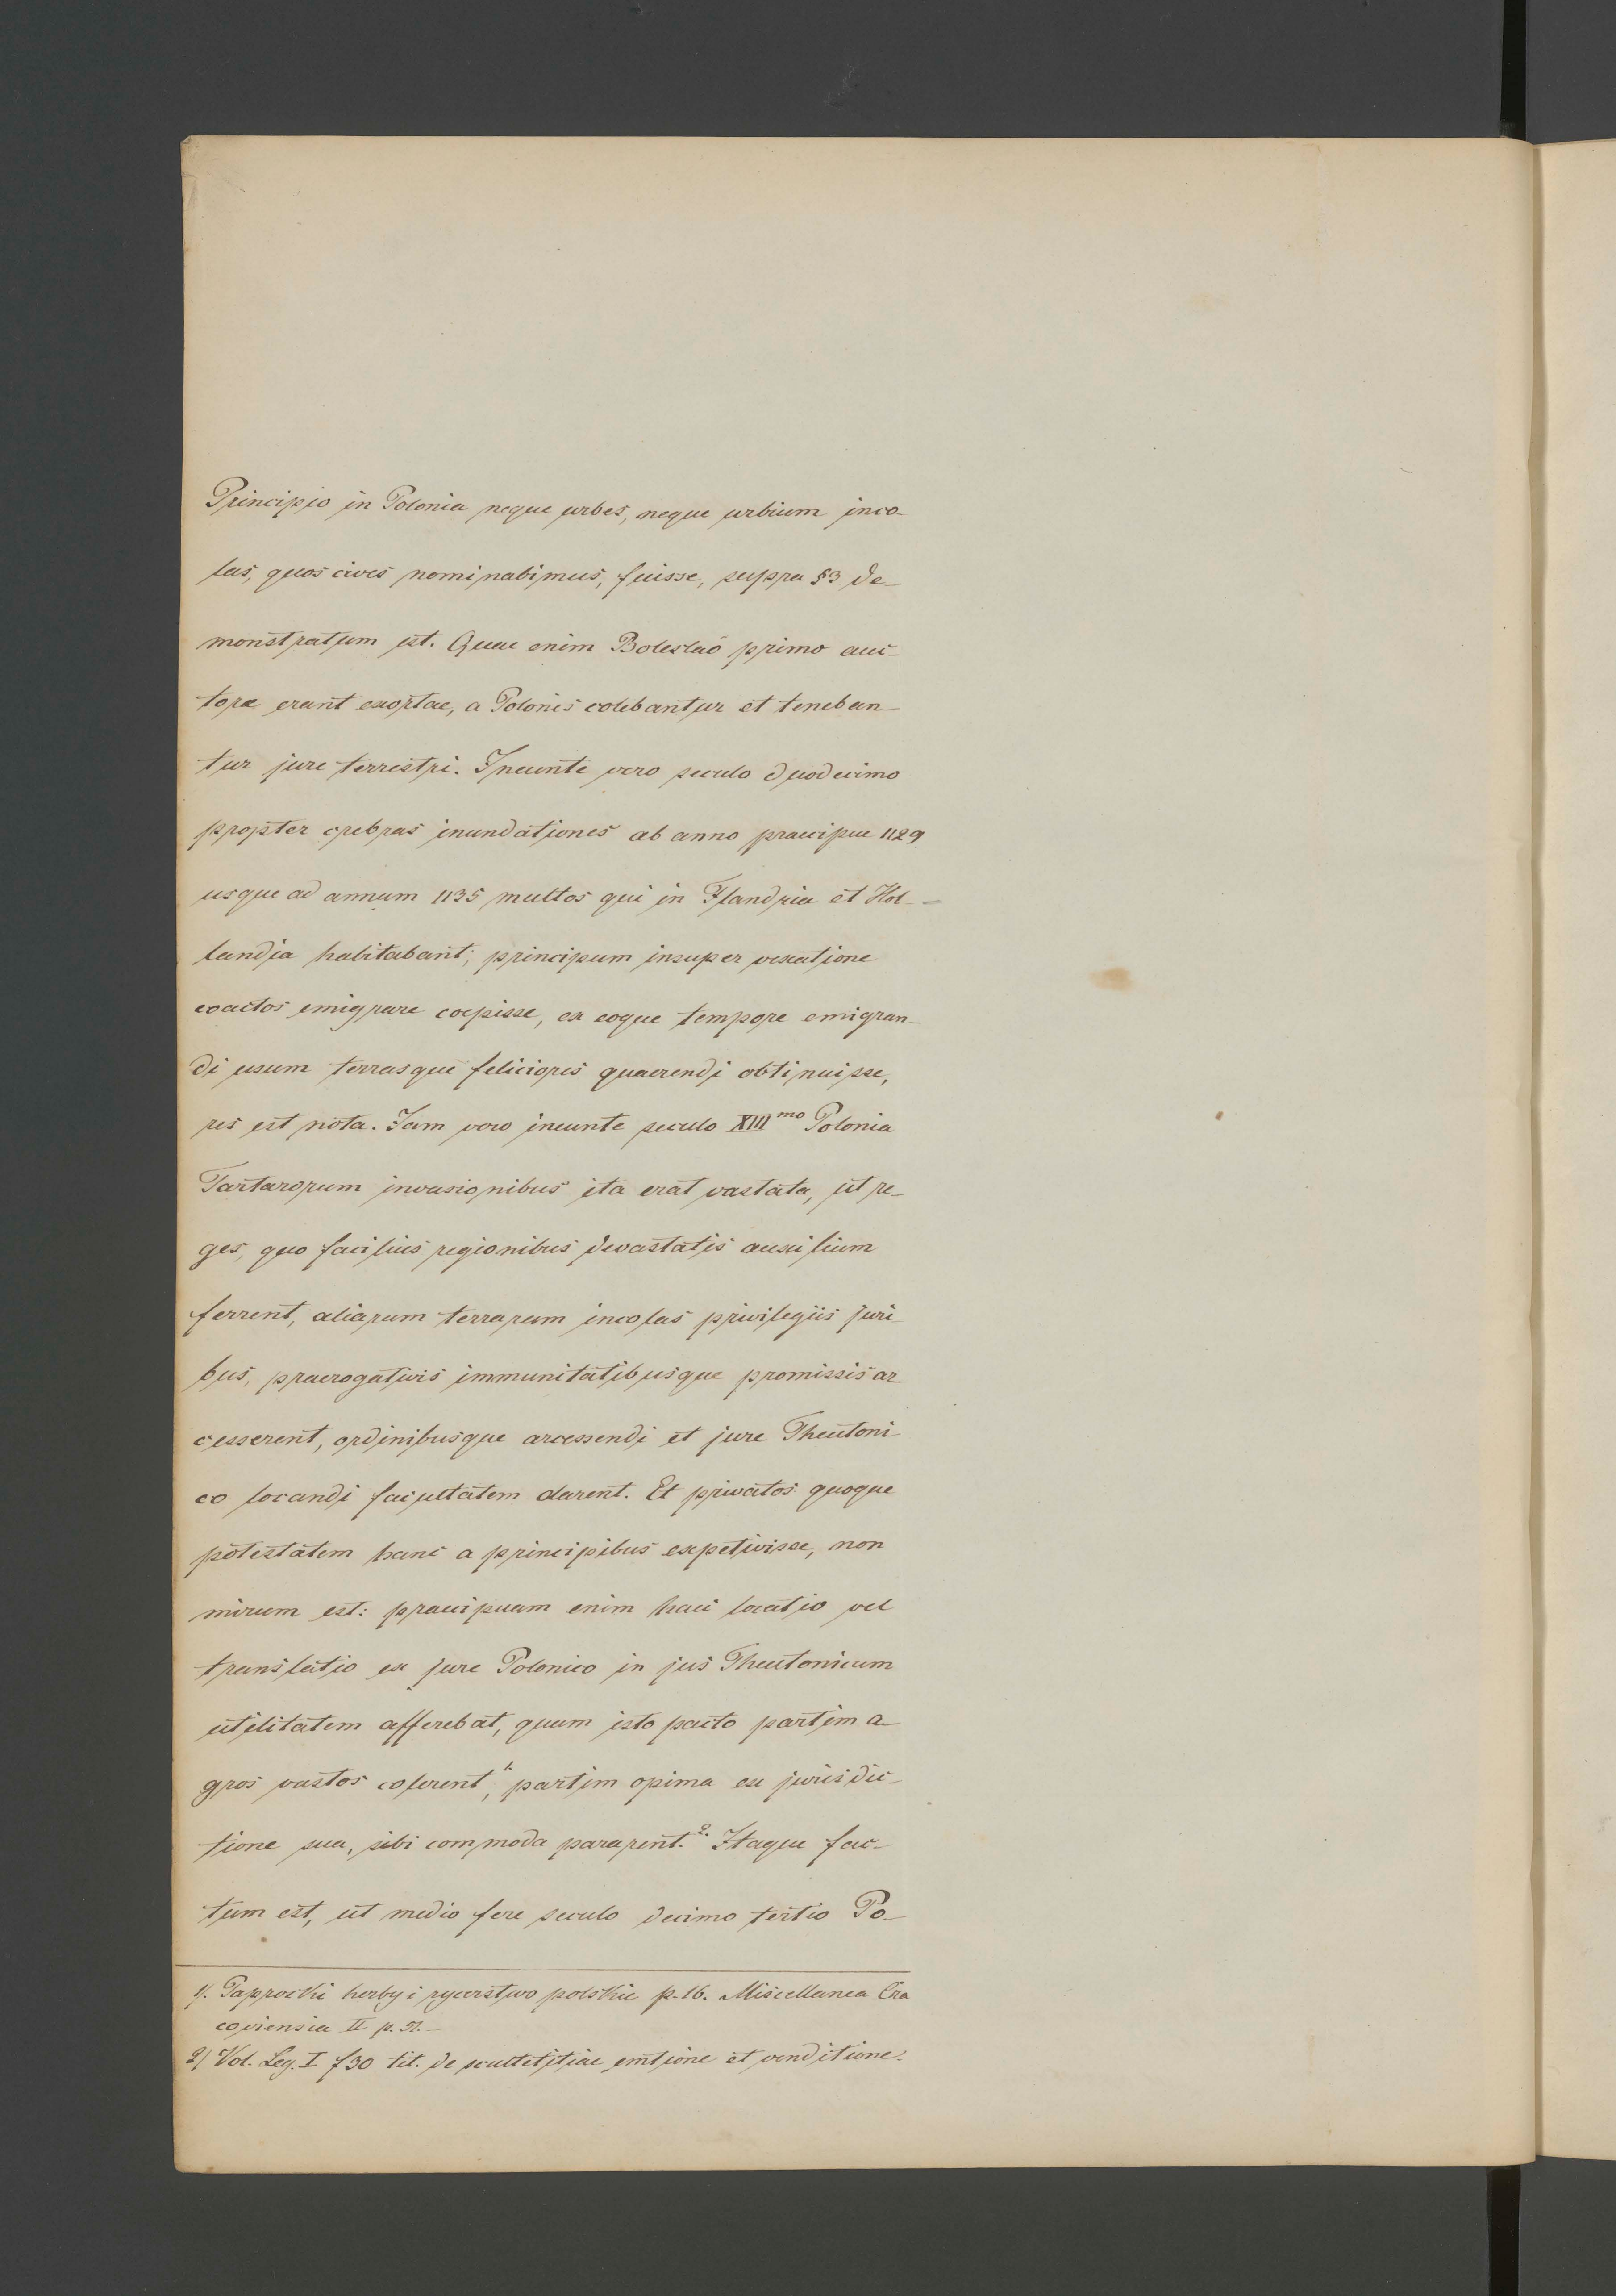 Principio in Polonia neque urbes, neque urbium inco-
las, quos cives nominabimus, fuisse, supra §3 de-
monstratum est. Quae enim Boleslao primo auc-
tore erant exortae, a Polonis colebantur et teneban-
tur jure terrestri. Ineunte vero seculo duodecimo
propter crebras inundationes ab anno praecipue 1129
usque ad annum 1135 multos qui in Flandria et Hol-
landia habitabant, principum insuper vexatione
coactos emigrare coepisse, ex eoque tempore emigran-
di usum terrasque feliciores quaerendi obtinuisse,
res est nota. Jam vero ineunte seculo XIII mo Polonia
Tartarorum invasionibus ita erat vastata, ut re-
ges, quo facilius regionibus devastatis auxilium
ferrent, aliarum terrarum incolas privilegiis juri
bus, praerogativis immunitatibusque promissis ar-
cesserent, ordinibusque arcessendi et jure Theutoni
co locandi facultatem darent. Et privatos quoque
potestatem hanc a principibus expetivisse, non
mirum est: praecipuam enim haec locatio vel
translatio ex jure Polonico in jus Theutonicum
utilitatem afferebat, quum isto pacto partim a-
gros vastos colerent, 1. partim opima ex jurisdic-
tione sua, sibi commoda pararent. 2. Itaque fac-
tum est, ut medio fere seculo decimo tertio Po-
1). Paprocki herby i rycerstwo polskie p. 16. Miscellanea Cra
coviensia II p. 51.-
2) Vol. Leg. I f 30 tit. de scultetitiae emtione et venditione.